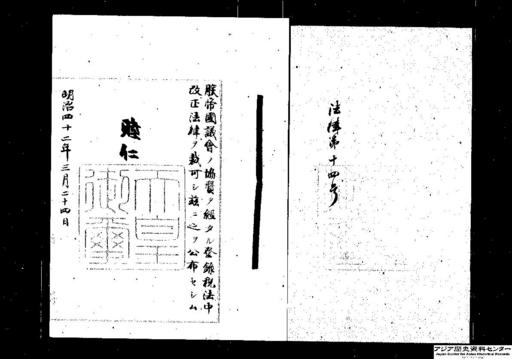 法律第十四号
朕帝國議會ノ協賛ヲ經タル登録税法中
改正法律ヲ裁可シ茲ニ之ヲ公布セシム
睦仁
天皇御璽
明治四十二年三月二十四日
アジア歴史資料センター
Japan Center for Asian Historical Records